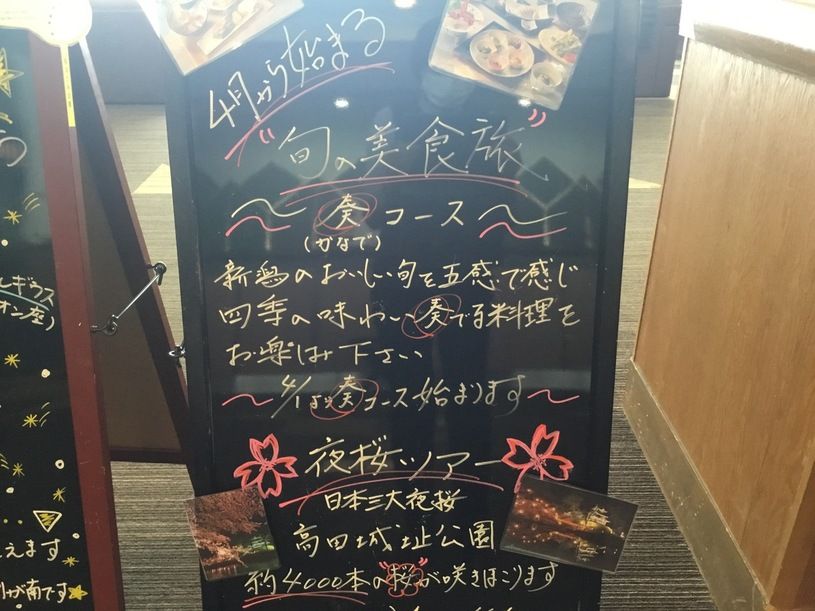 4月から始まる
"旬の美食旅"
〜奏コース〜
(かなで)
新潟のおいしい旬を五感で感じ
四季の味わい奏でる料理を
お楽しみ下さい
〜4/1より奏コース始まります〜
夜桜ツアー
日本三大夜桜
高田城址公園
約4000本の"桜"が咲きほこります
ルギウス
オン座)
えます
が南です